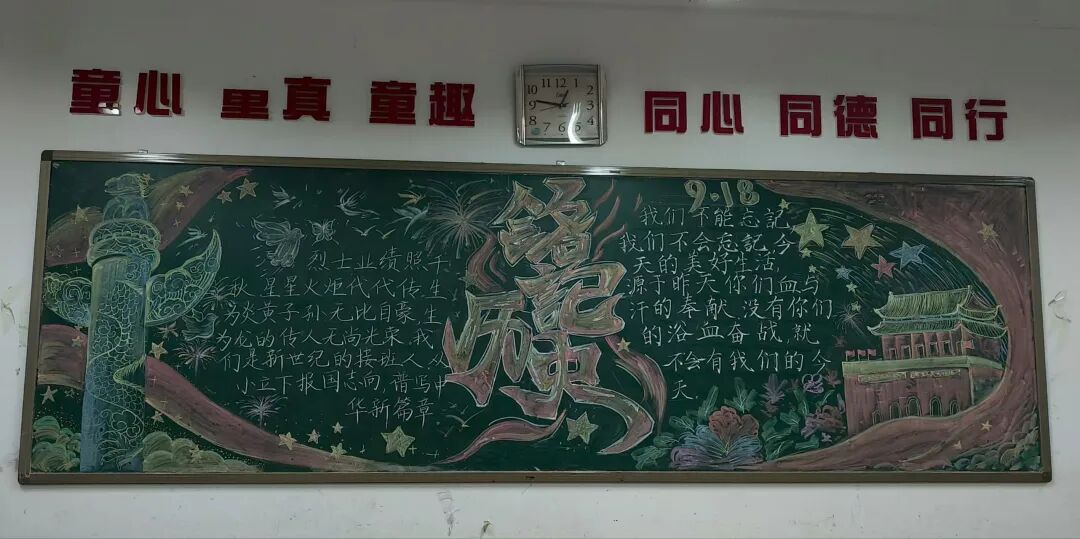 童心 童真 童趣
同心 同德 同行
铭记
历史
烈士业绩照千
秋,星星火炬代代传,生
为炎黄子孙无比自豪,生
为龙的传人无尚光荣,我
们是新世纪的接班人,从
小立下报国志向,谱写中
华新篇章
9.18
我们不能忘記,
我们不会忘記,今
天的美好生活,
源于昨天你们血与
汗的奉献,没有你们
的浴血奋战,就
不会有我们的今
天.
10 11 12 1
9 2
8 3
7 6 5 4